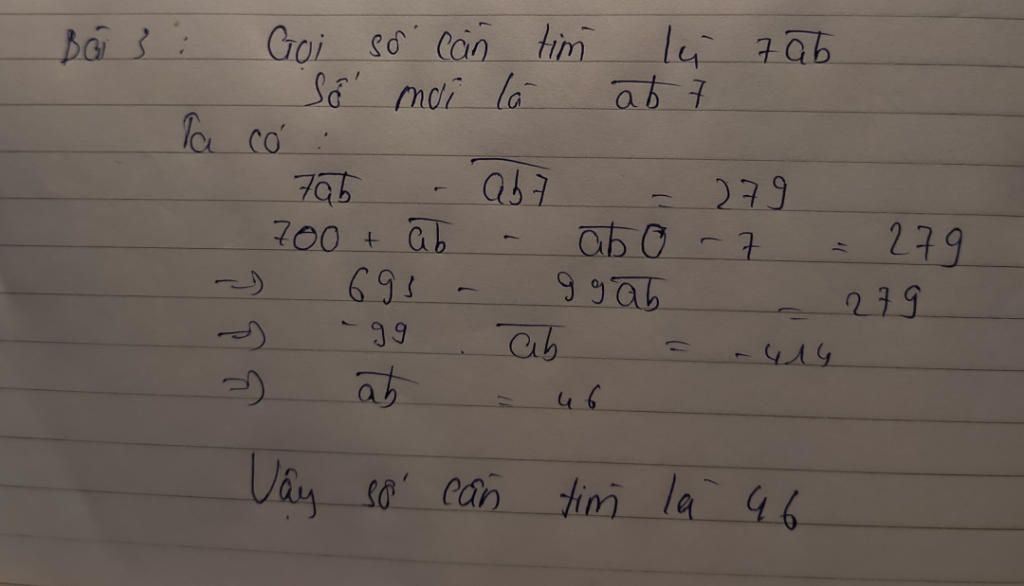 Bài 3 : Gọi số cần tìm là 7ab
Số mới là ab7
Ta có :
7ab - ab7 = 279
700 + ab - ab0 - 7 = 279
=> 693 - 99ab = 279
=> -99 . ab = -414
=> ab = 46
Vậy số cần tìm là 46